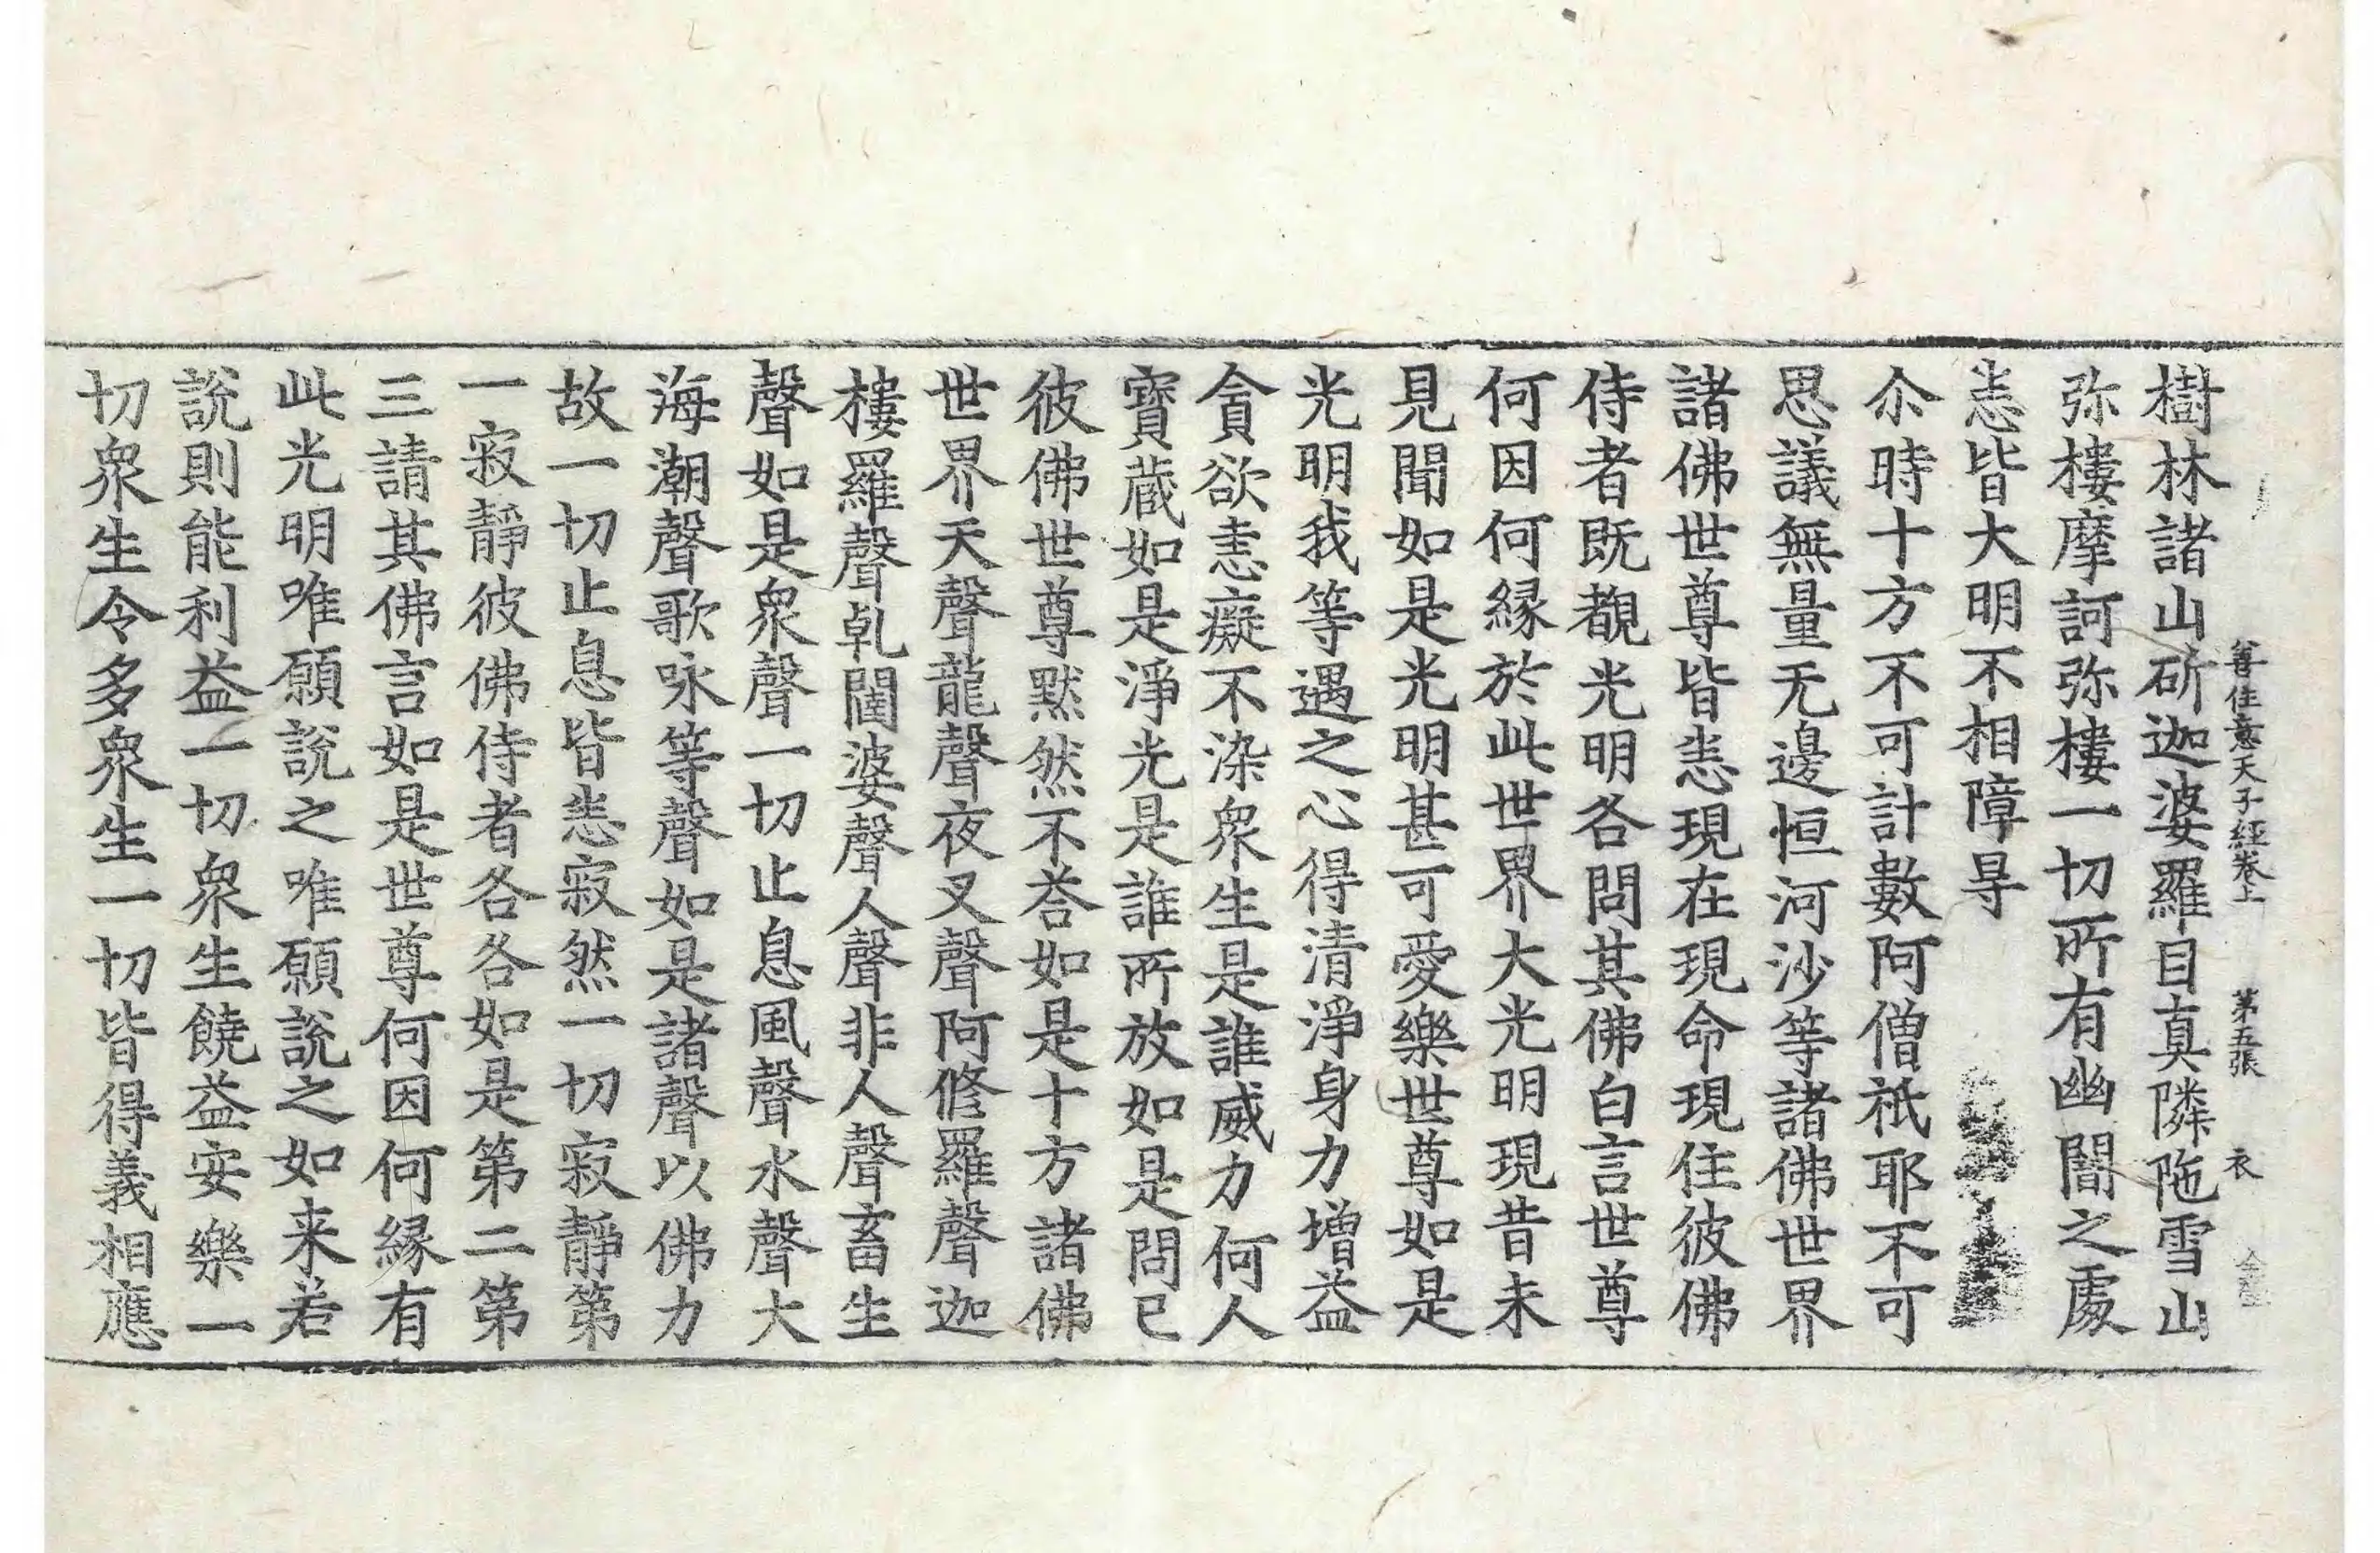 善住意天子經卷上 第五張 衣
樹林諸山斫迦婆羅目真隣陁雪山
弥樓摩訶弥樓一切所有幽闇之處
悉皆大明不相障㝵
尒時十方不可計數阿僧祇耶不可
思議無量无邊恒河沙等諸佛世界
諸佛世尊皆悉現在現命現住彼佛
侍者既覩光明各問其佛白言世尊
何因何緣於此世界大光明現昔未
見聞如是光明甚可愛樂世尊如是
光明我等遇之心得清淨身力增益
貪欲恚癡不染衆生是誰威力何人
寶蔵如是淨光是誰所放如是問已
彼佛世尊默然不荅如是十方諸佛
世界天聲龍聲夜叉聲阿脩羅聲迦
樓羅聲乹闥婆聲人聲非人聲畜生
聲如是衆聲一切止息風聲水聲大
海潮聲歌咏等聲如是諸聲以佛力
故一切止息皆悉寂然一切寂靜第
一寂靜彼佛侍者各各如是第二第
三請其佛言如是世尊何因何緣有
此光明唯願說之唯願說之如来若
說則能利益一切衆生饒益安樂一
切衆生令多衆生一切皆得義相應